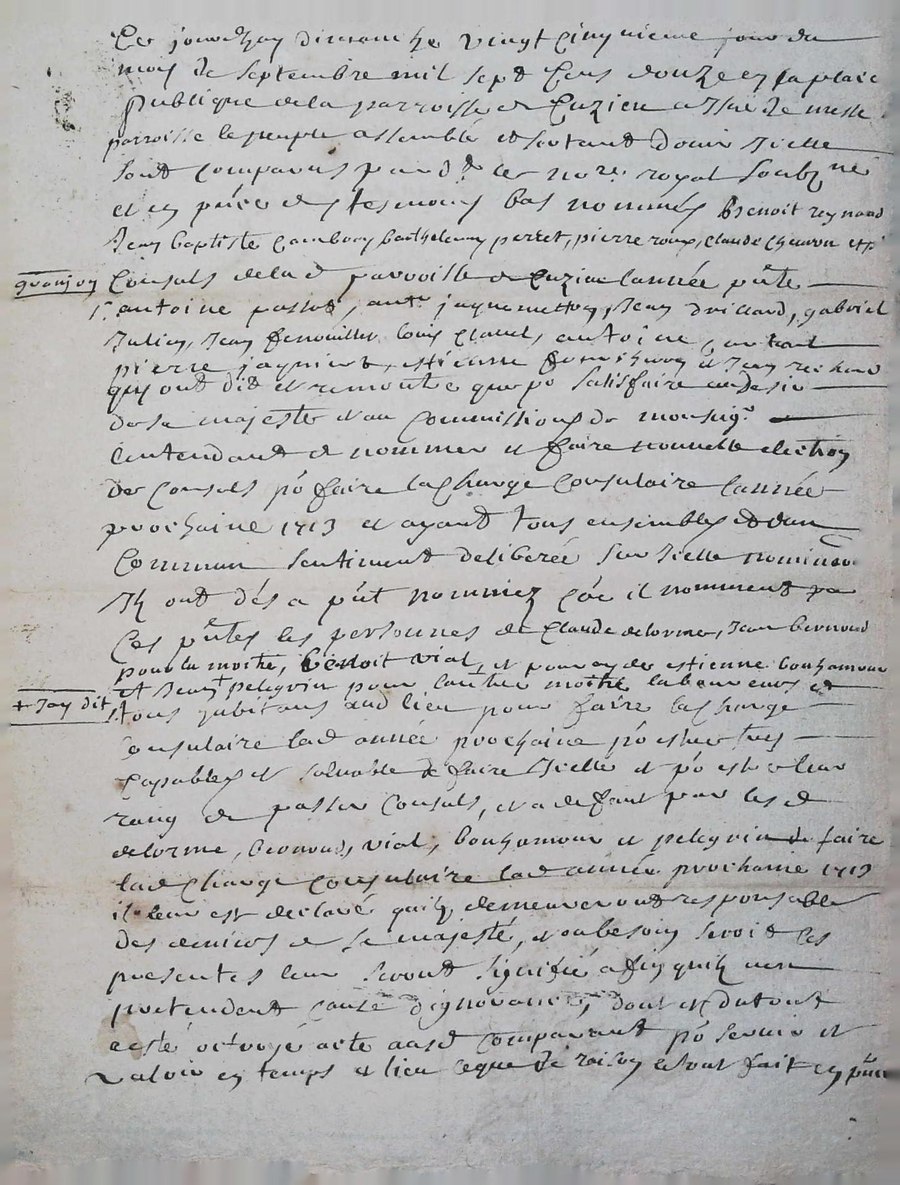 Ce jourdhuy dimanche vingt cinquieme jour du
mois de septembre mil sept cens douze en la place
publique de la parroisse de Cuzieu a lissue de messe
parroisse le peuple assemble et sortant douir icelle
sont comparus pardt le nore royal soubzne
et en pnce des tesmoins bas nommés Benoit reynaud
Jean baptiste barthelemy perret, pierre roux, claude et
quonjou
Consuls de lad parroisse de Cuzieu lannée pnte
antoine passot, antne Jean gabriel
Julien, Jean fenouillet, louis claud, antoine
pierre jaquier, estienne et Jean richard
quy ont dit et remontré que po satisfaire au desir
de sa majesté et au commissions de monsigr
lintendant de nommer et faire nouvelle election
de consuls po faire la charge consulaire lannée
prochaine 1713 et ayant tous ensembles et dun
commun sentiment deliberée sur icelle nominaon
Ils ont dés a pnt nommez coe il nomment par
Ces pntes les personnes de claude delorme, Jean bernoud
pour la moitié, benoit vial, et estienne bonhomme
et Jean pelegrin pour lautre moitié laboureurs et
+ Jay dit
tous habitans aud lieu pour faire la charge
consulaire lad année prochaine po estre tres
capables et solvable de faire icelle et po estre a leur
rang de passer consuls, et a defaut par les d
delorme, bernoud, vial, bonhomme et pelegrin de faire
lad charge consulaire lad année prochaine 1713
il leur est declaré quilz demeureront responsables
des deniers de sa majesté, et au besoin seroit les
presentes leur seront signifié afin quilz nen
pretendent cause dignorance, dont et du tout
a esté octroyé acte ausd comparant po servir et
valoir en temps et lieu ce que de raison et sont fait en pnce